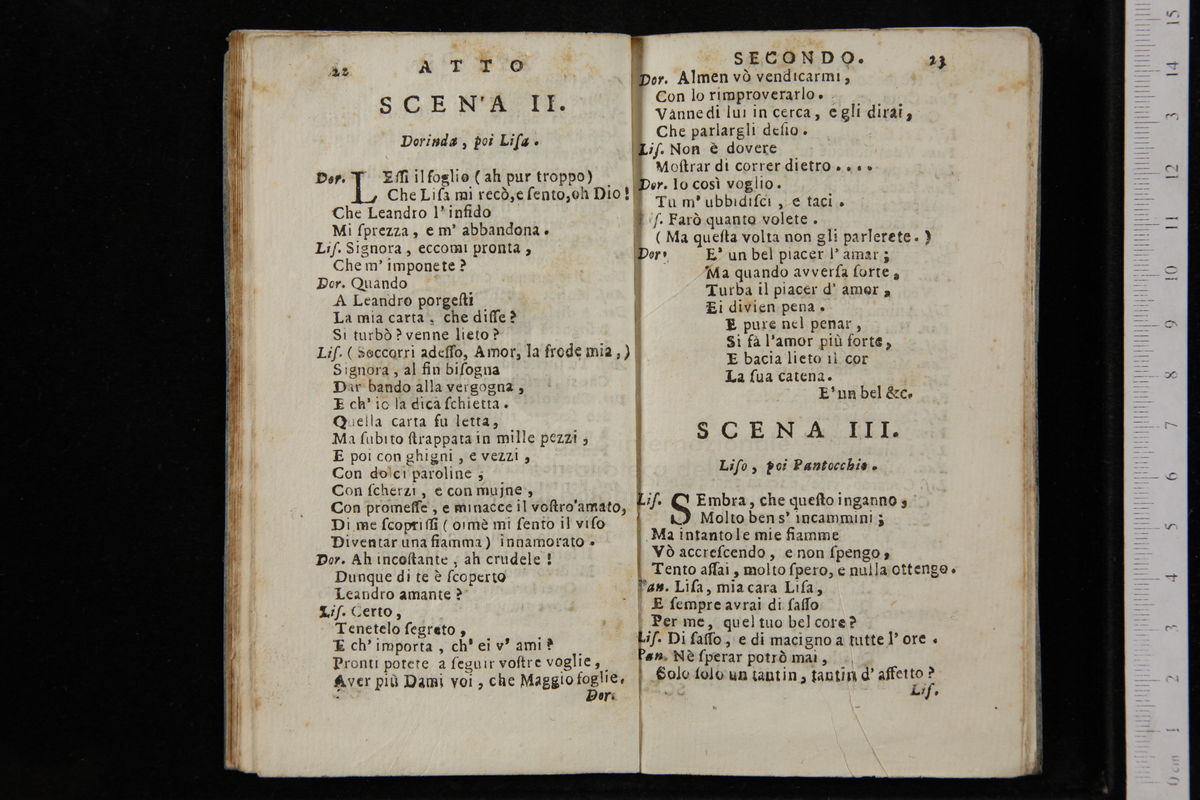 22 ATTO
SCENA II.
Dorinda, poi Liſa.
Dor. LEſſi il foglio (ah pur troppo)
Che Liſa mi recò, e ſento, oh Dio!
Che Leandro l' infido
Mi ſprezza, e m' abbandona.
Liſ. Signora, eccomi pronta,
Che m' imponete?
Dor. Quando
A Leandro porgeſti
La mia carta, che diſſe?
Si turbò? venne lieto?
Liſ. (Soccorri adeſſo, Amor, la frode mia,)
Signora, al fin biſogna
Dar bando alla vergogna,
E ch' io la dica ſchietta.
Quella carta fu letta,
Ma ſubito ſtrappata in mille pezzi,
E poi con ghigni, e vezzi,
Con dolci paroline;
Con ſcherzi, e con mujne,
Con promeſſe, e minacce il voſtro amato,
Di me ſcopriſſi (oimè mi ſento il viſo
Diventar una fiamma) innamorato.
Dor. Ah incoſtante, ah crudele!
Dunque di te è ſcoperto
Leandro amante?
Liſ. Certo,
Tenetelo ſegreto,
E ch' importa, ch' ei v' ami?
Pronti potete a ſeguir voſtre voglie,
Aver più Dami voi, che Maggio foglie.
Dor.
SECONDO. 23
Dor. Almen vò vendicarmi,
Con lo rimproverarlo.
Vanne di lui in cerca, e gli dirai,
Che parlargli deſio.
Liſ. Non è dovere
Moſtrar di correr dietro....
Dor. Io così voglio.
Tu m' ubbidiſci, e taci.
Liſ. Farò quanto volete.
(Ma queſta volta non gli parlerete.)
Dor. E' un bel piacer l' amar;
Ma quando avverſa ſorte,
Turba il piacer d' amor,
Ei divien pena.
E pure nel penar,
Si fà l'amor più forte,
E bacia lieto il cor
La ſua catena.
E' un bel &c.
SCENA III.
Liſo, poi Pantocchio.
Liſ. SEmbra, che queſto inganno,
Molto ben s' incammini;
Ma intanto le mie fiamme
Vò accreſcendo, e non ſpengo,
Tento aſſai, molto ſpero, e nulla ottengo.
Pan. Liſa, mia cara Liſa,
E ſempre avrai di ſaſſo
Per me, quel tuo bel core?
Liſ. Di ſaſſo, e di macigno a tutte l' ore.
Pan. Nè ſperar potrò mai,
Solo ſolo un tantin, tantin d' affetto?
Liſ.